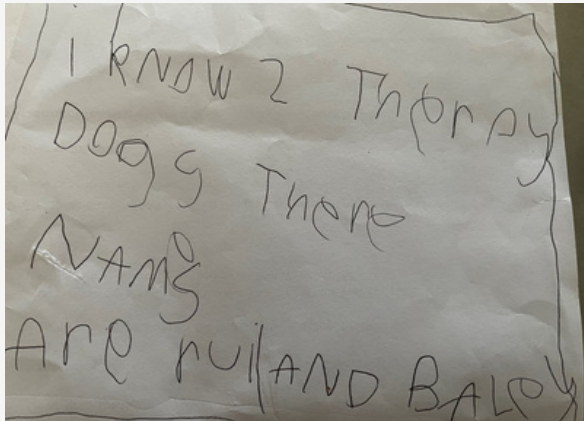 i kNOW 2 Therapy
DOgs There
NAMes
Are rul AND BALey